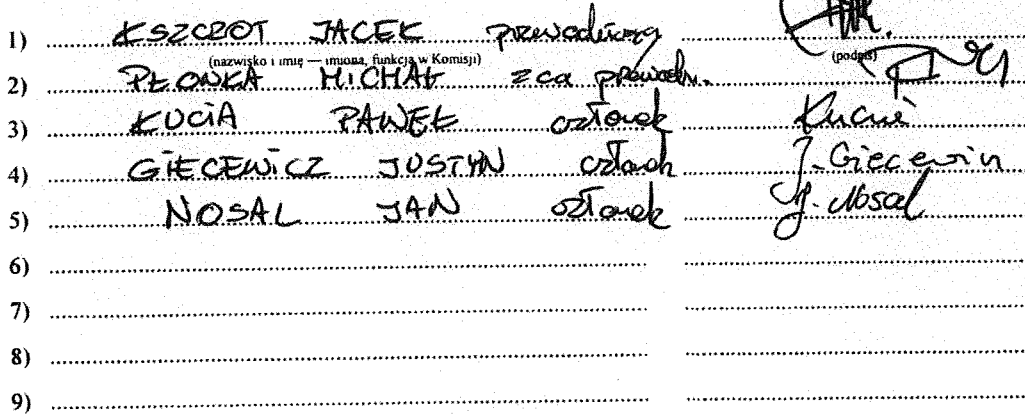 1) KSZCZOT JACEK przewodniczący
(nazwisko i imię — imiona, funkcja w Komisji) (podpis)
2) PŁONKA MICHAŁ zca przewodn.
3) KUCIA PAWEŁ członek Kucia
4) GIECEWICZ JUSTYN członek J. Giecewicz
5) NOSAL JAN członek J. Nosal
6)
7)
8)
9)